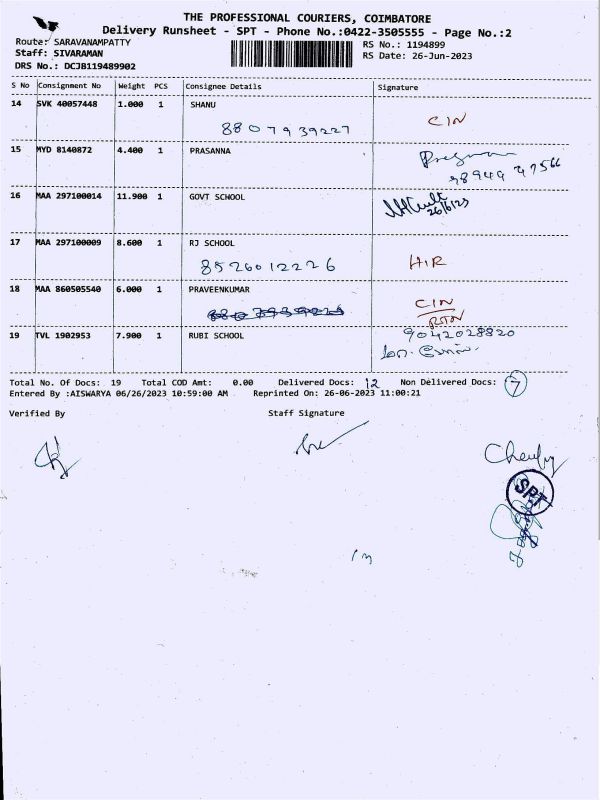 THE PROFESSIONAL COURIERS, COIMBATORE
Delivery Runsheet - SPT - Phone No.:0422-3505555 - Page No.:2
Route: SARAVANAMPATTY
RS No.: 1194899
Staff: SIVARAMAN
RS Date: 26-Jun-2023
DRS No.: DCJB119489902
S No Consignment No Weight PCS Consignee Details Signature
14 SVK 40057448 1.000 1 SHANU
8807939227 CIN
15 MYD 8140872 4.400 1 PRASANNA
16 MAA 297100014 11.900 1 GOVT SCHOOL
26/6/23
17 MAA 297100009 8.600 1 RJ SCHOOL
8526012226 HIR
18 MAA 860505540 6.000 1 PRAVEENKUMAR
CIN
19 TVL 1902953 7.900 1 RUBI SCHOOL
9042028820
Total No. Of Docs: 19 Total COD Amt: 0.00 Delivered Docs: 12 Non Delivered Docs: 7
Entered By :AISWARYA 06/26/2023 10:59:00 AM Reprinted On: 26-06-2023 11:00:21
Verified By Staff Signature
SPT